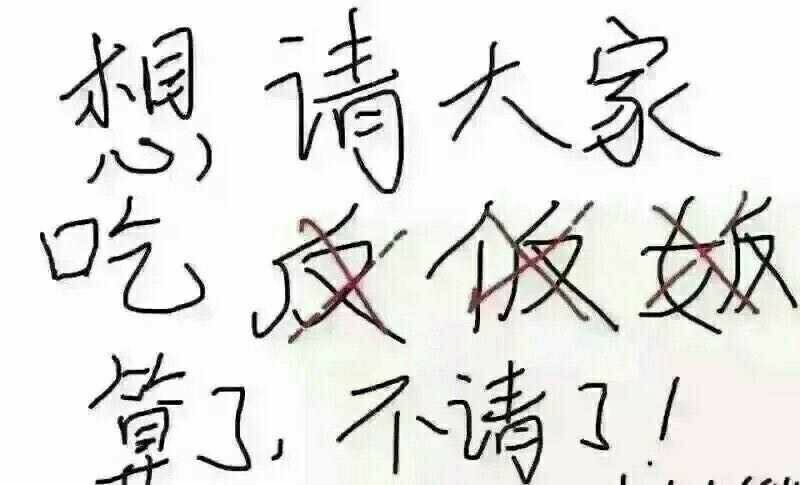 想请大家
吃反仮姂
算了,不请了!